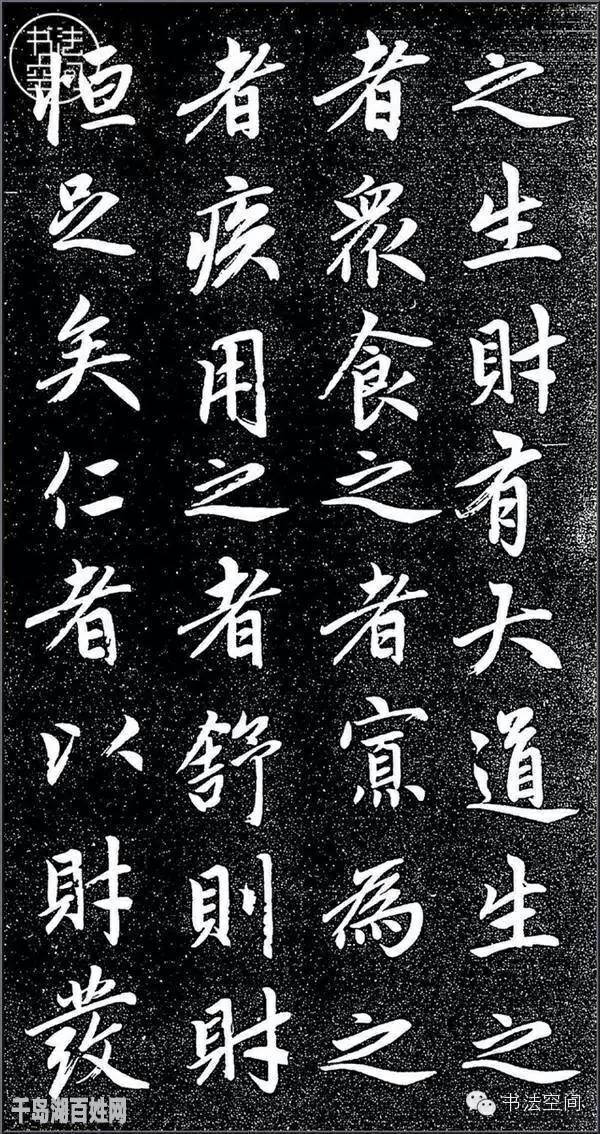 之生財有大道生之
者眾食之者寡為之
者疾用之者舒則財
恒足矣仁者以財發
书法空间
千岛湖百姓网
书法空间